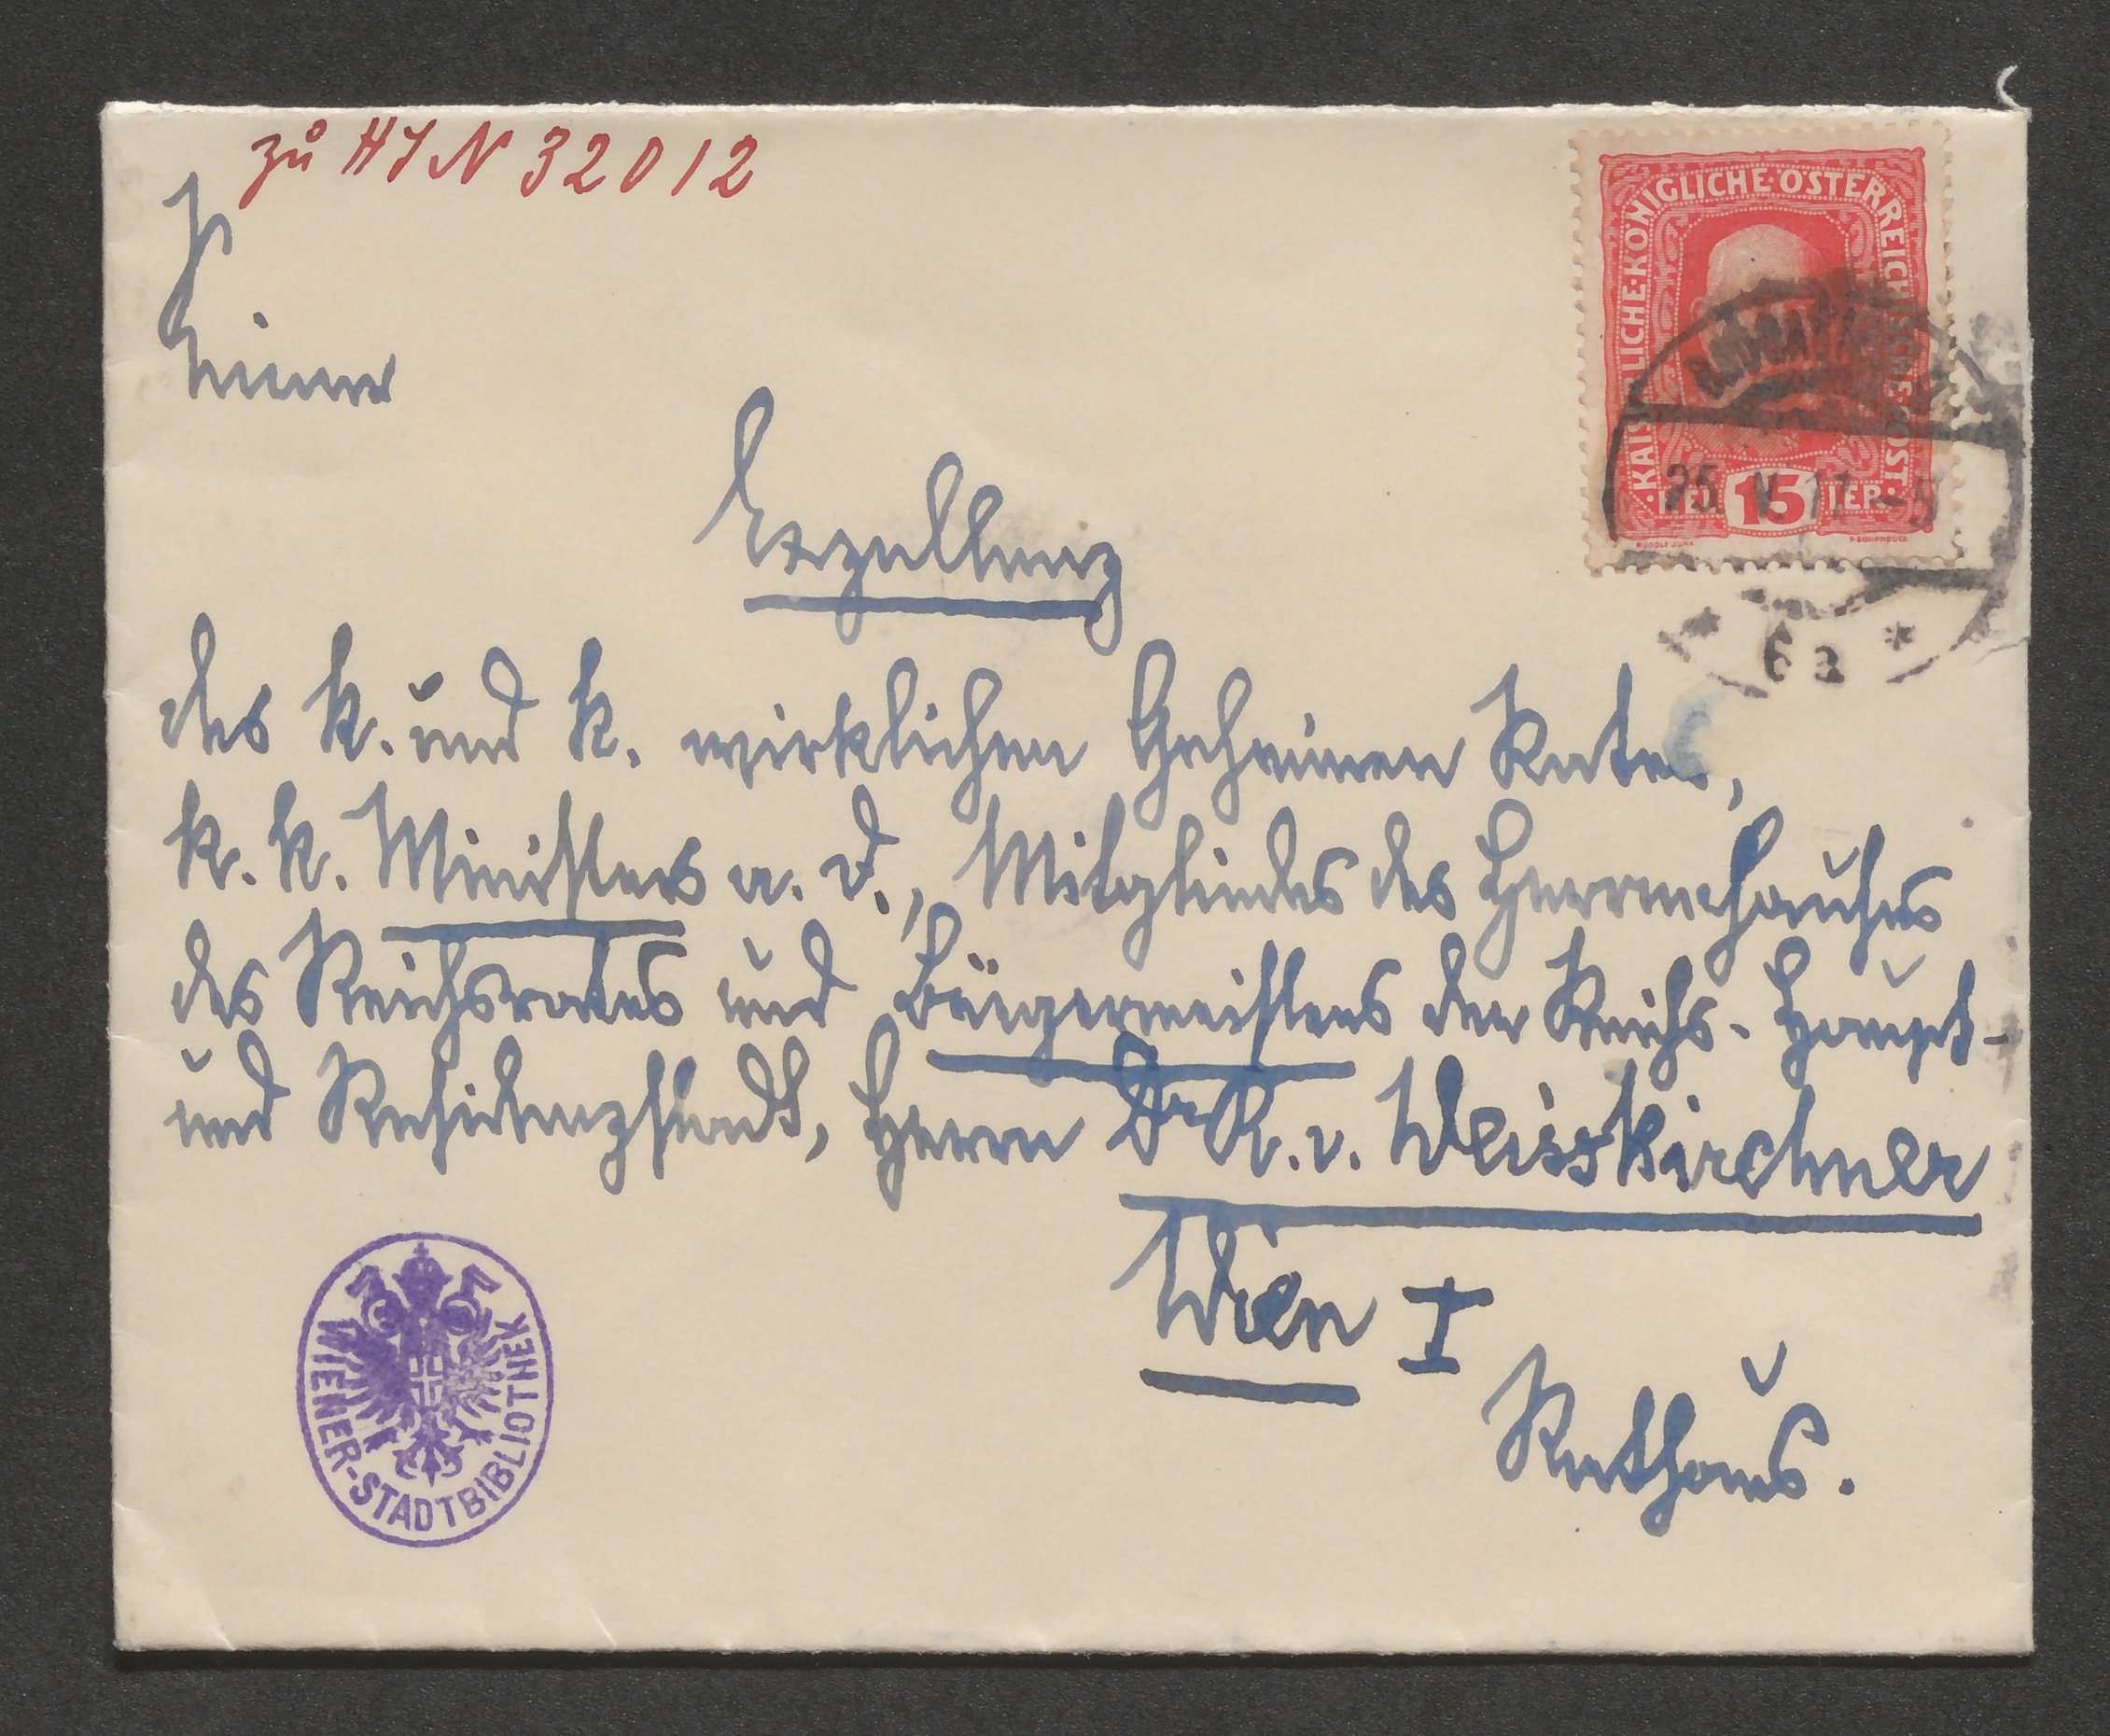 zu HIN 32012
Seiner
Exzellenz
des k. und k. wirklichen Geheimen Rates,
k. k. Ministers a. D., Mitgliedes des Herrenhauses
des Reichsrates und Bürgermeisters der Reichs- Haupt-
und Residenzstadt, Herrn Dr R. v. Weisskirchner
Wien I
Rathaus.
KAISERLICHE·KÖNIGLICHE·ÖSTERREICHISCHE·POST·
HELLER 15 HELLER
25. V. 17
6a
WIENER-STADTBIBLIOTHEK